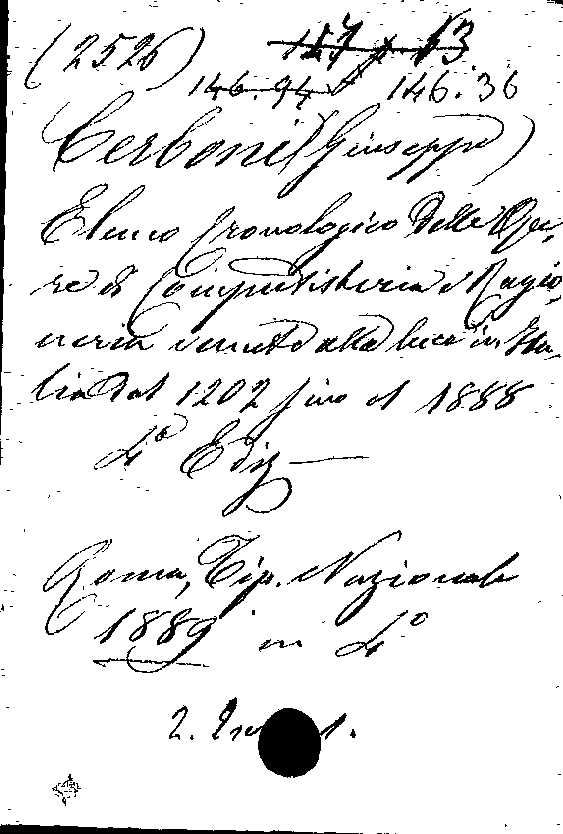 (2526) 147 p 13
146.94 146.36
Cerboni (Giuseppe)
Elenco Cronologico delle Ope,
re di Computisteria e Ragio,
neria venute alla luce in Ita,
lia dal 1202 fino al 1888
4ª Ediz
Roma, Tip. Nazionale
1889 in 4º
2.